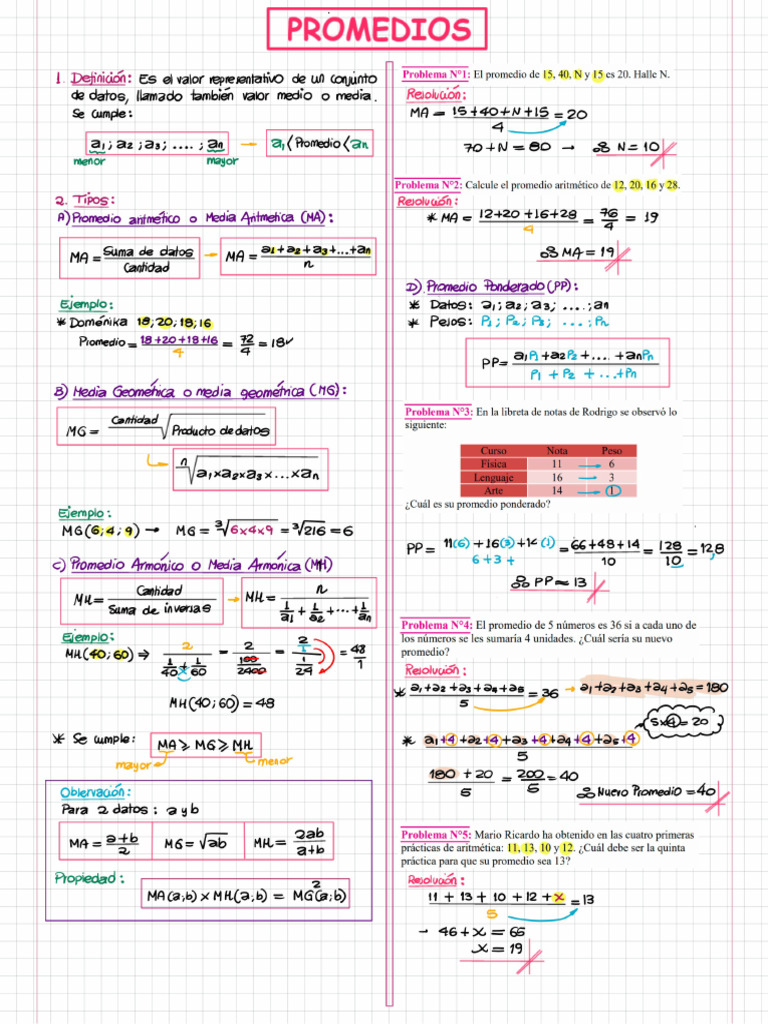 PROMEDIOS
1. Definición: Es el valor representativo de un conjunto
de datos, llamado también valor medio o media.
Se cumple:
a₁ ; a₂ ; a₃ ; .... ; aₙ → a₁ < Promedio < aₙ
menor mayor
2. Tipos:
A) Promedio aritmético o Media Aritmetica (MA):
MA = Suma de datos / Cantidad → MA = a₁ + a₂ + a₃ + ... + aₙ / n
Ejemplo:
* Doménika 18; 20; 18; 16
Promedio = 18 + 20 + 18 + 16 / 4 = 72 / 4 = 18 ✓
B) Media Geométrica o media geométrica (MG):
MG = Cantidad√Producto de datos
ⁿ√a₁ × a₂ × a₃ × ... × aₙ
Ejemplo:
MG(6; 4; 9) → MG = ³√6×4×9 = ³√216 = 6
C) Promedio Armónico o Media Armónica (MH)
MH = Cantidad / Suma de inversas → MH = n / 1/a₁ + 1/a₂ + ... + 1/aₙ
Ejemplo:
MH(40; 60) ⇒ 2 / 1/40 + 1/60 = 2 / 100/2400 = 2/1 / 1/24 = 48/1
MH(40; 60) = 48
* Se cumple: MA ≥ MG ≥ MH
mayor menor
Observación:
Para 2 datos: a y b
MA = a+b / 2 MG = √ab MH = 2ab / a+b
Propiedad:
MA(a;b) × MH(a;b) = MG²(a;b)
Problema N°1: El promedio de 15, 40, N y 15 es 20. Halle N.
Resolución:
MA = 15 + 40 + N + 15 / 4 = 20
70 + N = 80 → ∴ N = 10
Problema N°2: Calcule el promedio aritmético de 12, 20, 16 y 28.
Resolución:
* MA = 12 + 20 + 16 + 28 / 4 = 76 / 4 = 19
∴ MA = 19
D) Promedio Ponderado (PP):
* Datos: a₁ ; a₂ ; a₃ ; .... ; aₙ
* Pesos: P₁ ; P₂ ; P₃ ; .... ; Pₙ
PP = a₁P₁ + a₂P₂ + .... + aₙPₙ / P₁ + P₂ + ... + Pₙ
Problema N°3: En la libreta de notas de Rodrigo se observó lo
siguiente:
Curso Nota Peso
Física 11 → 6
Lenguaje 16 → 3
Arte 14 → 1
¿Cuál es su promedio ponderado?
PP = 11(6) + 16(3) + 14(1) / 6 + 3 + = 66 + 48 + 14 / 10 = 128 / 10 = 12,8
∴ PP = 13
Problema N°4: El promedio de 5 números es 36 si a cada uno de
los números se les sumaría 4 unidades. ¿Cuál sería su nuevo
promedio?
Resolución:
* a₁ + a₂ + a₃ + a₄ + a₅ / 5 = 36 → a₁ + a₂ + a₃ + a₄ + a₅ = 180
5×4 = 20
* a₁ + 4 + a₂ + 4 + a₃ + 4 + a₄ + 4 + a₅ + 4 / 5
180 + 20 / 5 = 200 / 5 = 40
∴ Nuevo Promedio = 40
Problema N°5: Mario Ricardo ha obtenido en las cuatro primeras
prácticas de aritmética: 11, 13, 10 y 12. ¿Cuál debe ser la quinta
práctica para que su promedio sea 13?
Resolución:
11 + 13 + 10 + 12 + x / 5 = 13
→ 46 + x = 65
x = 19